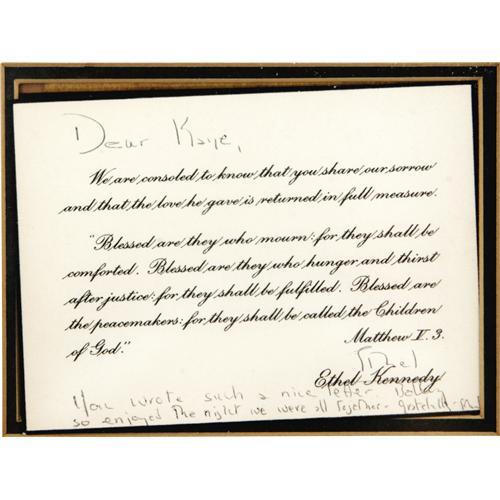 Dear Kaye,
We are consoled to know that you share our sorrow
and that the love he gave is returned in full measure.
"Blessed are they who mourn: for they shall be
comforted. Blessed are they who hunger and thirst
after justice: for they shall be fulfilled. Blessed are
the peacemakers: for they shall be called the Children
of God."
Matthew V. 3.
Ethel
Ethel Kennedy
You wrote such a nice letter
so enjoyed the night we were all together - gratefully -